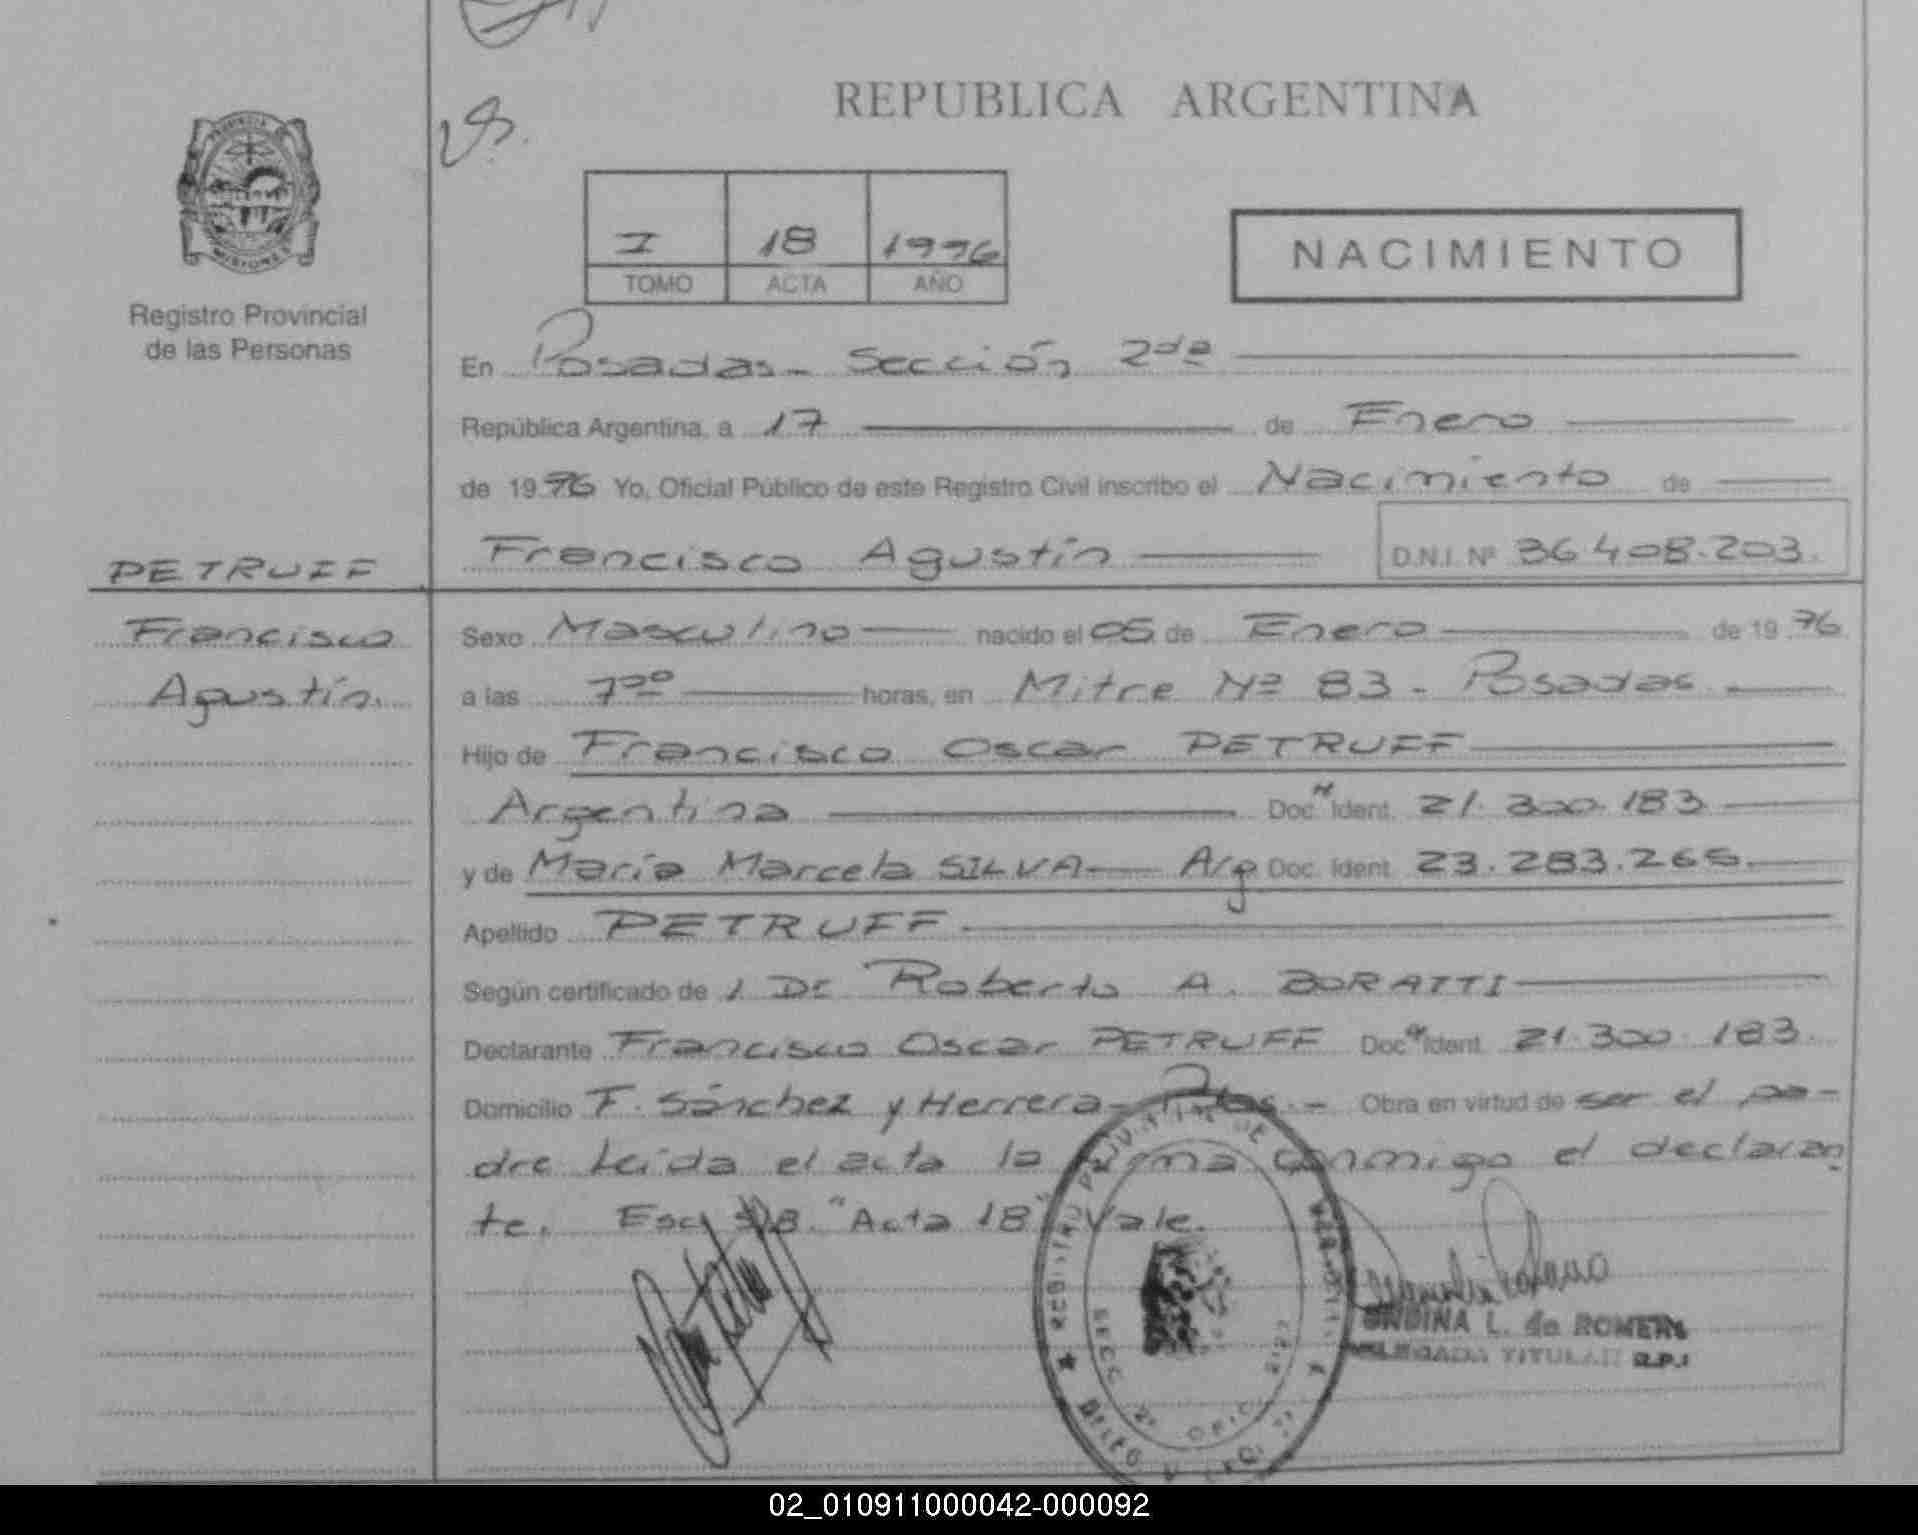 REPUBLICA ARGENTINA
I 18 1996
TOMO ACTA AÑO
NACIMIENTO
Registro Provincial
de las Personas
En Posadas - Sección 2da
República Argentina, a 17 de Enero
de 1996 Yo, Oficial Público de este Registro Civil inscribo el Nacimiento de
PETRUFF
Francisco Agustín D.N.I. Nº 36.408.203.
Francisco
Agustín.
Sexo Masculino nacido el 05 de Enero de 1996
a las 7ºº horas, en Mitre Nº 83 - Posadas
Hijo de Francisco Oscar PETRUFF
Argentina Doc. Ident. 21.300.183
y de María Marcela SILVA Arg Doc. Ident. 23.283.265.
Apellido PETRUFF
Según certificado de 1 Dr Roberto A. BORATTI
Declarante Francisco Oscar PETRUFF Doc. Ident. 21.300.183.
Domicilio F. Sánchez y Herrera - Pdas. - Obra en virtud de ser el pa-
dre Leida el acta la firma conmigo el declaran
te. "Acta 18" Vale.
L. de ROMERO
DELEGADA TITULAR R.P.
02_010911000042-000092